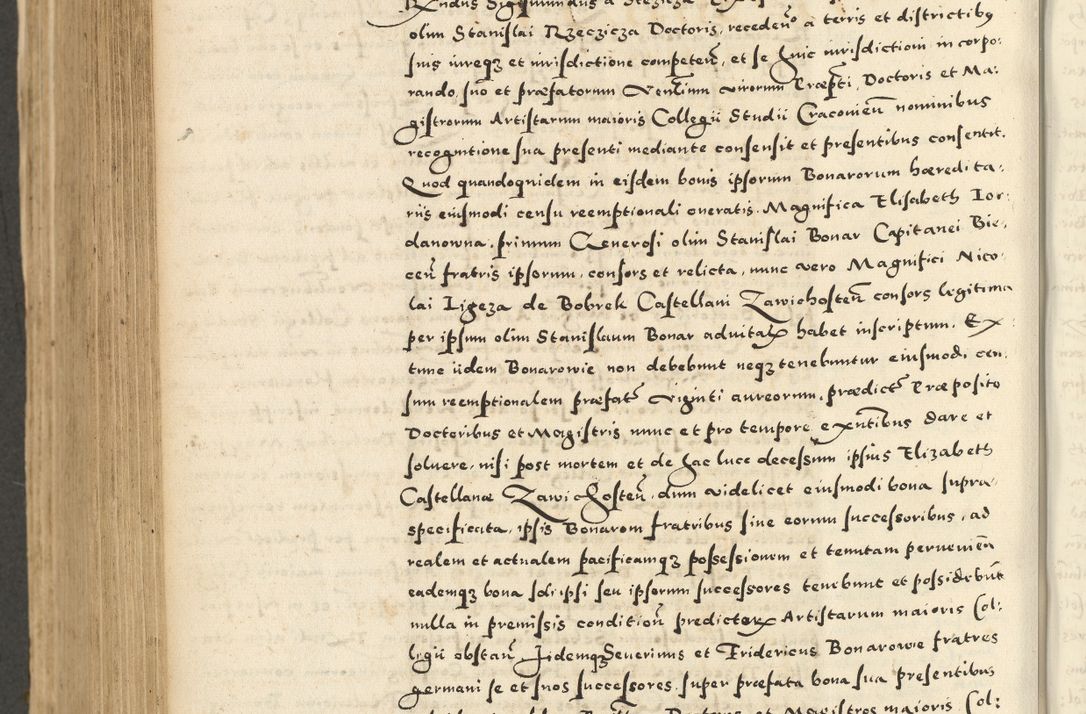 olim Stanislai Rzeczicza Doctoris, receden̄ᵒ a terris et districtibꝯ
suis iureqꝫ et iurisdictione competen̄, et se huic iurisdictioni incorpo:
rando, suo et præfatorum Ven̄lium virorum Præp̄ti, Doctoris et Ma:
gistrorum Artistarum maioris Collegii Studii Cracouien̄ nominibus
recognitione sua presenti mediante consensit et presentibus consentit.
Quod quandoquidem in eisdem bonis ipsorum Bonarorum hæredita:
riis eiusmodi censu reemptionali oneratis, Magnifica Elisabeth Ior:
danowna, primum Generosi olim Stanislai Bonar Capitanei Bie:
cen̄ fratris ipsorum, consors et relicta, nunc vero Magnifici Nico:
lai Ligeza de Bobrek Castellani Zawichosten̄ consors legitima
per ipsum olim Stanislaum Bonar aduitalꝝ habet inscriptum. Ex
tunc iidem Bonarowie non debebunt neqꝫ tenebuntur eiusmodi cen:
sum reemptionalem præfatꝭ viginti aureorum, prædictꝭ Præposito
Doctoribus et Magistris nunc et pro tempore exn̄tibus dare et
soluere, nisi post mortem et de hac luce decessum ipsius Elizabeth
Castellanæ Zawichosten̄, dum videlicet eiusmodi bona supra:
specificata, ipsis Bonarom fratribus siue eorum successoribus, ad
realem et actualem pacificamqꝫ possessionem et tenutam peruenien̄
eademqꝫ bona soli ipsi seu ipsorum successores tenebunt et possidebūt
nulla in premissis condition̄ predictorꝝ Artistarum maioris Col:
legii obstan̄ Iidemqꝫ Seuerinus et Fridericus Bonarowie fratres
germani se et suos successores super præfata bona sua presentibus